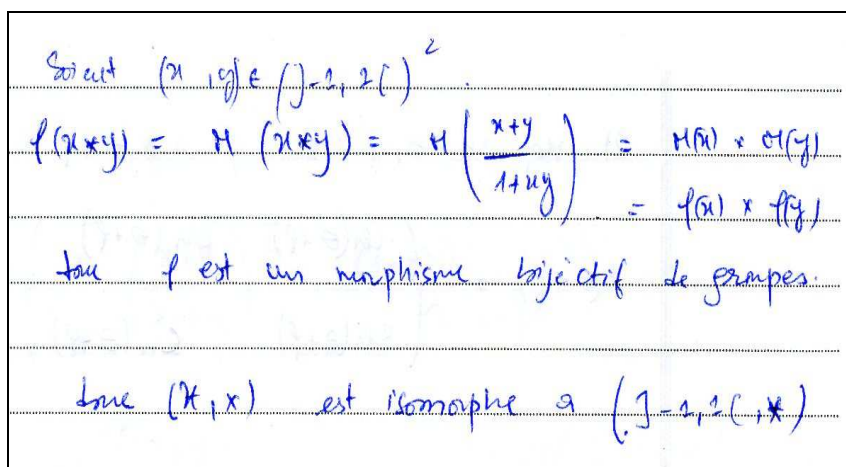 Soient (x, y) ∈ (]-1, 1[)²
f(x*y) = M (x*y) = M ( (x+y) / (1+xy) ) = M(x) × M(y)
= f(x) × f(y)
donc f est un morphisme bijéctif de groupes.
donc (H, ×) est isomorphe a (]-1, 1[, *)